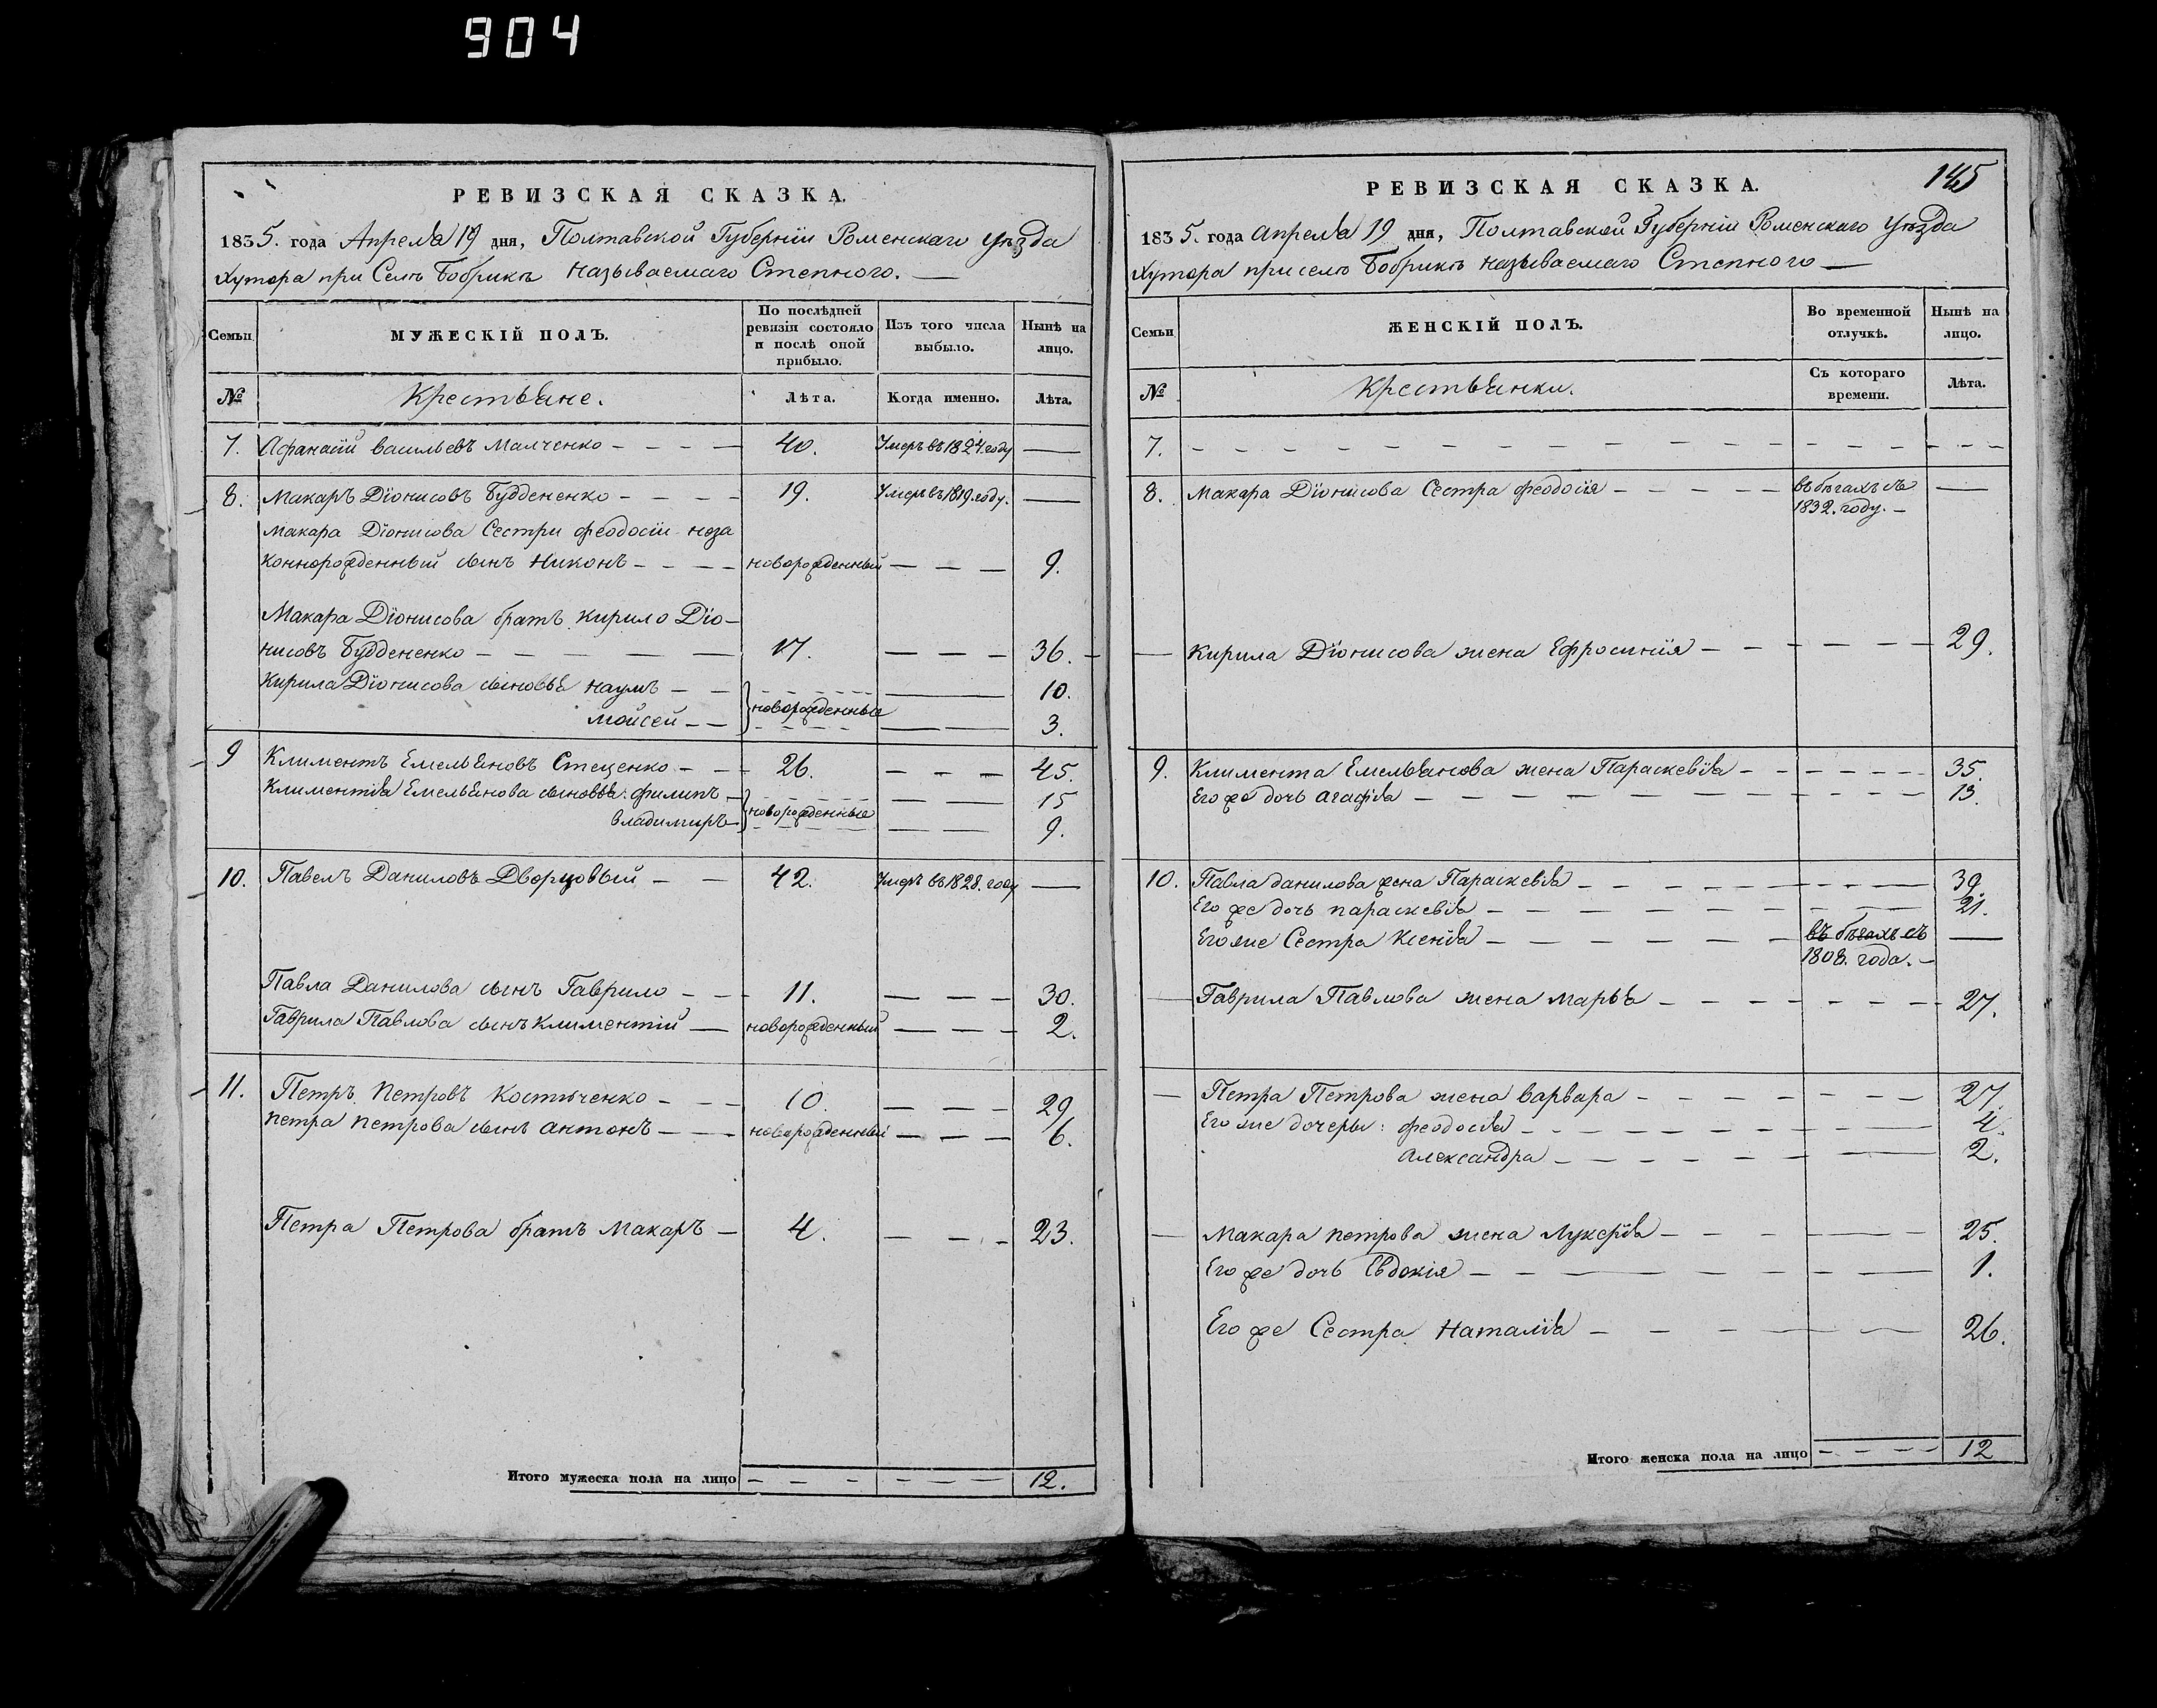 904
РЕВИЗСКАЯ СКАЗКА.
1835. года Апреля 19 дня, Полтавской Губернїи Роменскаго уѣзда
Хутора при Селѣ Бобрикѣ называемаго Степного. —
Семьи
МУЖЕСКІЙ ПОЛЪ.
По послѣдней ревизіи состояло и послѣ оной прибыло.
Изъ того числа выбыло.
Нынѣ на лицо.
№ Крестьяне. Лѣта. Когда именно. Лѣта.
7. Афанасїй васильевъ Малченко 40. Умеръ въ 1824. году —
8. Макаръ Дїонисовъ Буддененко 19. Умеръ въ 1819. году. —
Макара Дїонисова Сестры феодосїи неза
коннорожденный сынъ Никонъ новорожденный 9.
Макара Дїонисова братъ Кирило Дїо–
нисовъ Буддененко 17. 36.
Кирила Дїонисова сыновья Наумъ 10.
новорожденные
Мойсей 3.
9 Климентъ Емельяновъ Стеценко 26. 45.
Климентїя Емельянова сыновья: филипъ 15
новорожденные
владимиръ 9.
10. Павелъ Даниловъ Дворцовый 42. Умеръ въ 1828. году —
Павла Данилова сынъ Гаврило 11. 30.
Гаврила Павлова сынъ Климентїй новорожденный 2.
11. Петръ Петровъ Костюченко 10. 29
Петра Петрова сынъ антонъ новорожденный 6.
Петра Петрова братъ Макаръ 4. 23.
Итого мужеска пола на лицо 12.
145
РЕВИЗСКАЯ СКАЗКА.
1835. года Апреля 19 дня, Полтавской Губернїи Роменскаго Уѣзда
Хутора при селѣ Бобрикѣ называемаго Степного —
Семьи
ЖЕНСКІЙ ПОЛЪ.
Во временной отлучкѣ.
Нынѣ на лицо.
№ Крестьянки. Съ котораго времени. Лѣта.
7.
8. Макара Дїонисова Сестра феодосїя въ бѣгахъ съ —
1832. году. —
Кирила Дїонисова жена Ефросинїя 29.
9. Климента Емельянова жена Параскевїя 35.
Его же дочь агафїя 13.
10. Павла данилова жена Параскевїя 39.
Его же дочь параскевїя 21.
Его же Сестра Ксенїя въ бѣгахъ съ —
1808. года. —
Гаврила Павлова жена марья 27.
Петра Петрова жена варвара 27
Его же дочеры: феодосїя 4.
Александра 2.
Макара петрова жена Лукерїя 25.
Его же дочь Евдокїя 1.
Его же Сестра Наталїя 26.
Итого женска пола на лицо 12